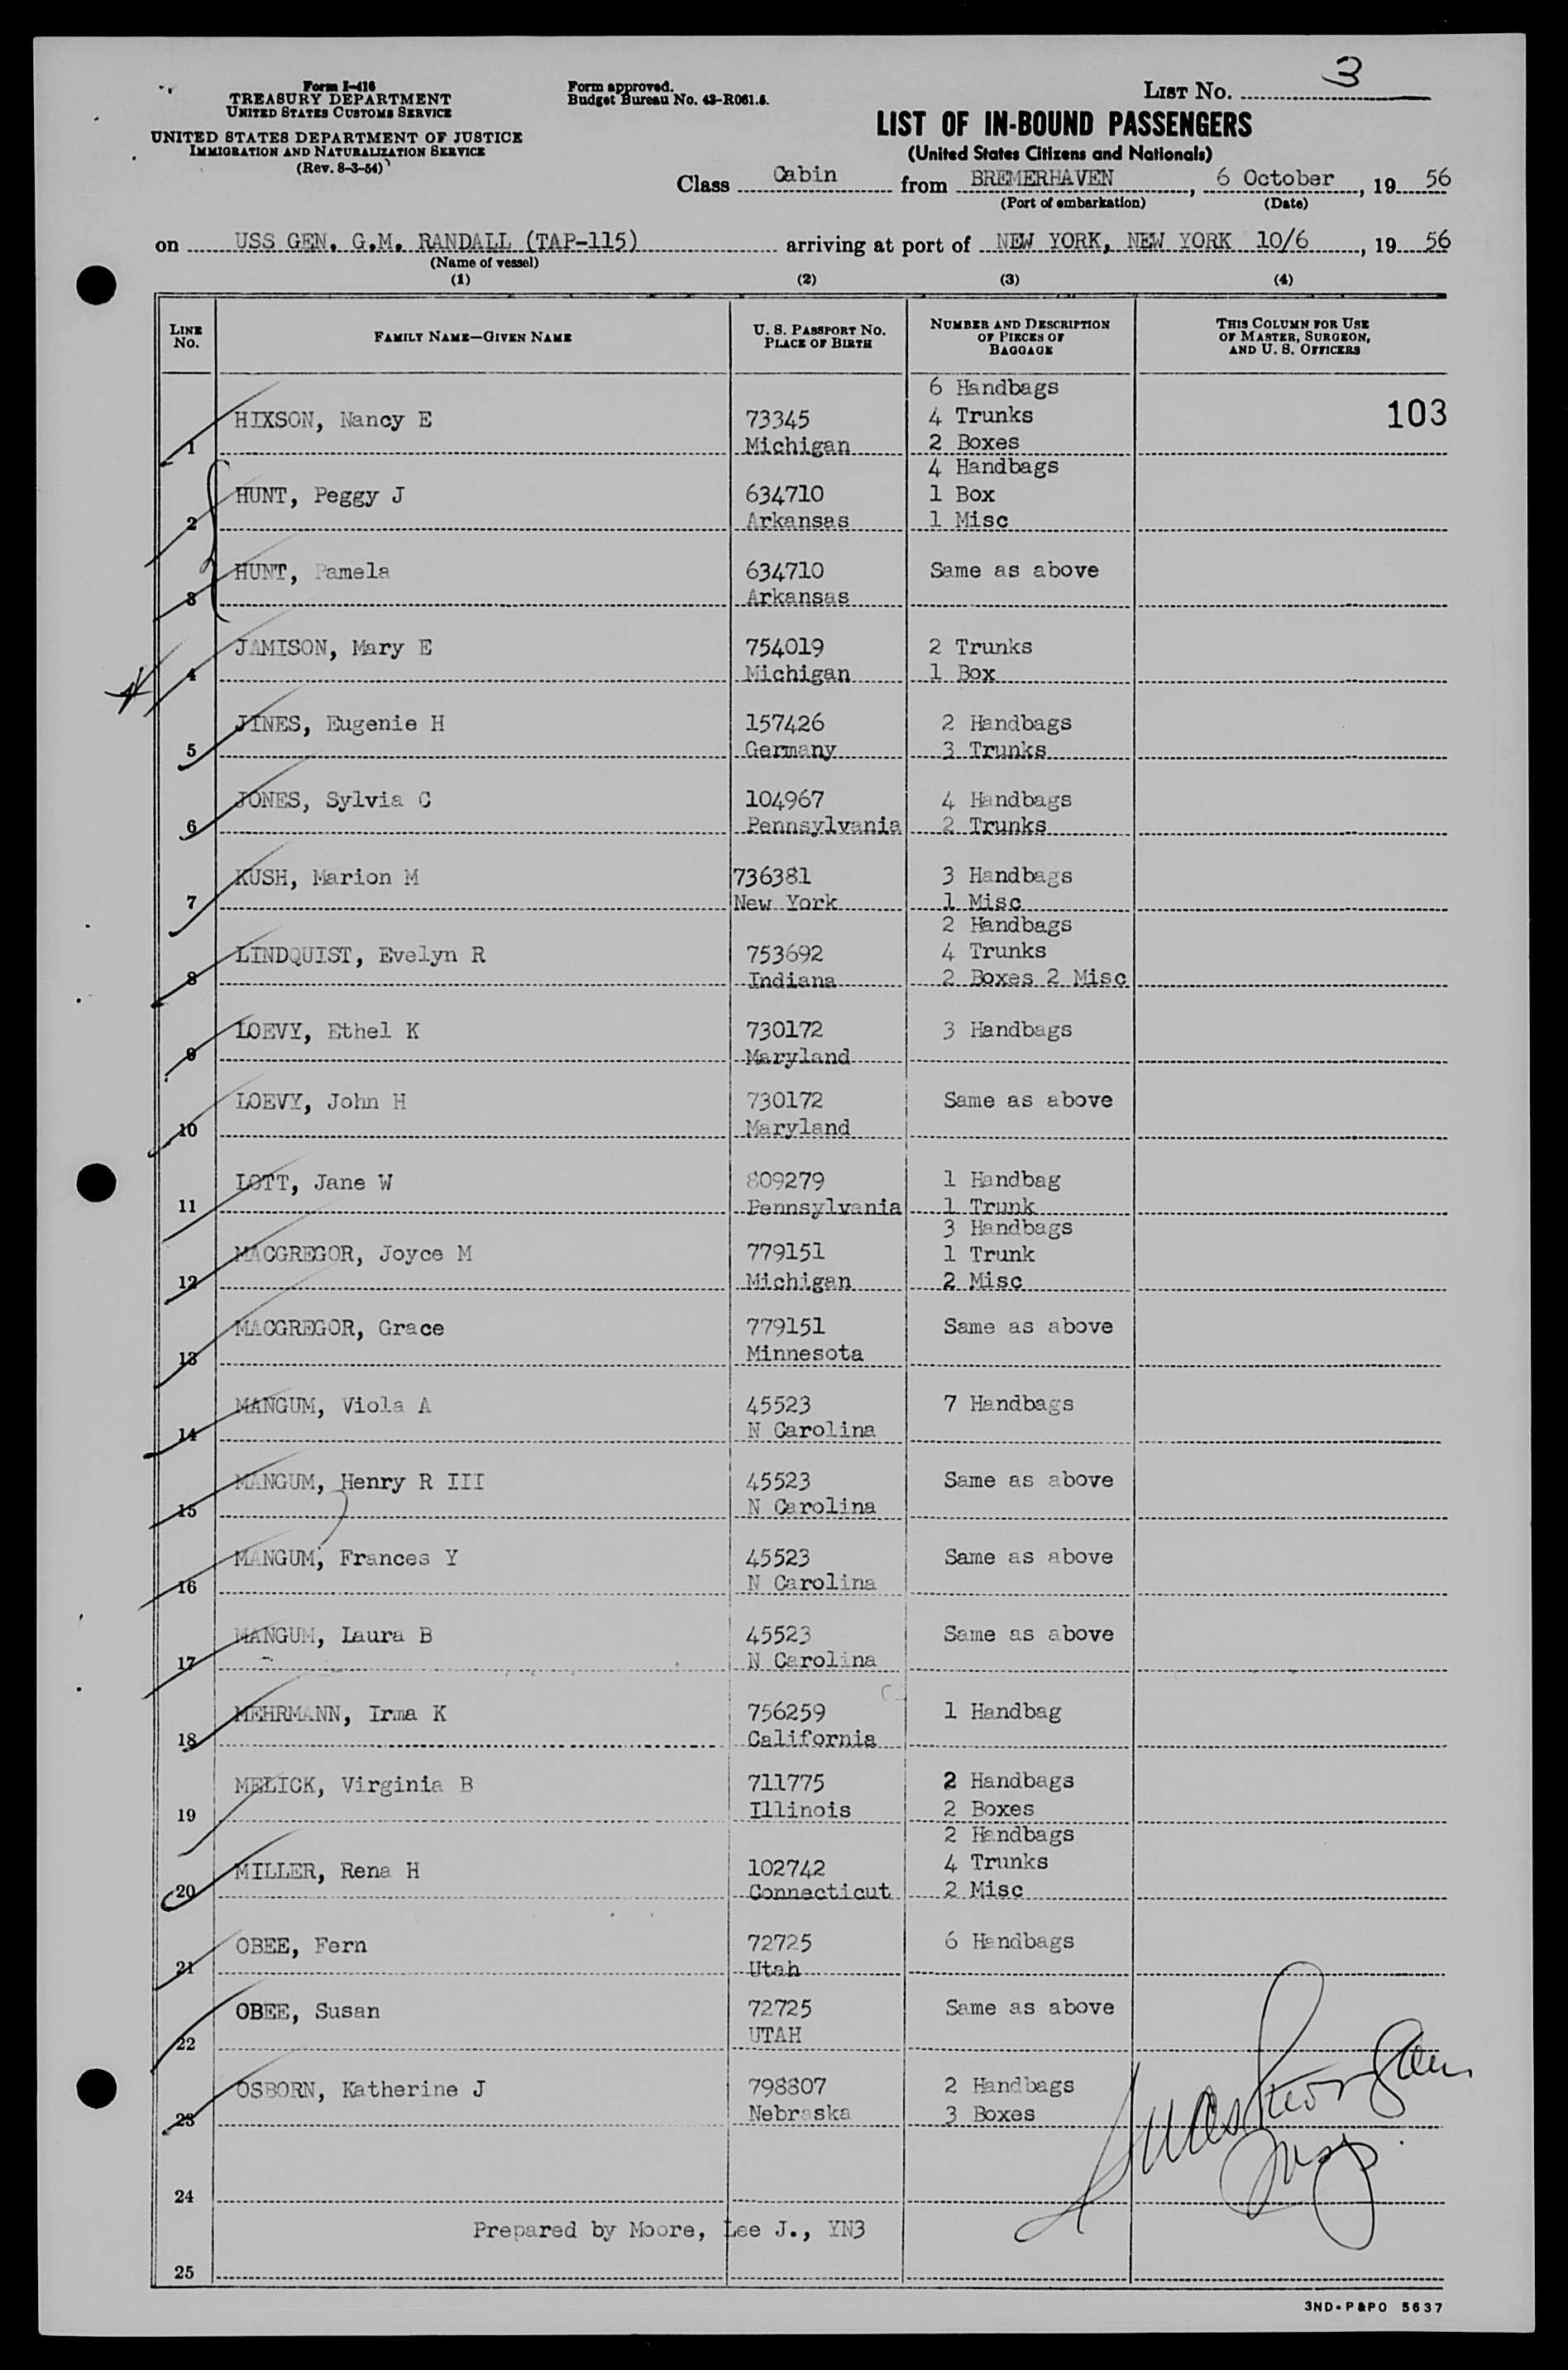 Form I-416
TREASURY DEPARTMENT
UNITED STATES CUSTOMS SERVICE
UNITED STATES DEPARTMENT OF JUSTICE
IMMIGRATION AND NATURALIZATION SERVICE
(Rev. 8-3-54)
Form approved.
Budget Bureau No. 43-R061.5.
LIST No. 3
LIST OF IN-BOUND PASSENGERS
(United States Citizens and Nationals)
Class Cabin from BREMERHAVEN, 6 October, 19 56
(Port of embarkation) (Date)
on USS GEN. G.M. RANDALL (TAP-115) arriving at port of NEW YORK, NEW YORK 10/6, 19 56
(Name of vessel)
(1) (2) (3) (4)
LINE No. FAMILY NAME—GIVEN NAME U. S. PASSPORT NO. PLACE OF BIRTH NUMBER AND DESCRIPTION OF PIECES OF BAGGAGE THIS COLUMN FOR USE OF MASTER, SURGEON, AND U. S. OFFICERS
6 Handbags
HIXSON, Nancy E 73345 4 Trunks 103
1 Michigan 2 Boxes
4 Handbags
HUNT, Peggy J 634710 1 Box
2 Arkansas 1 Misc
HUNT, Pamela 634710 Same as above
3 Arkansas
JAMISON, Mary E 754019 2 Trunks
4 Michigan 1 Box
JINES, Eugenie H 157426 2 Handbags
5 Germany 3 Trunks
JONES, Sylvia C 104967 4 Handbags
6 Pennsylvania 2 Trunks
KUSH, Marion M 736381 3 Handbags
7 New York 1 Misc
2 Handbags
LINDQUIST, Evelyn R 753692 4 Trunks
8 Indiana 2 Boxes 2 Misc
LOEVY, Ethel K 730172 3 Handbags
9 Maryland
LOEVY, John H 730172 Same as above
10 Maryland
LOTT, Jane W 809279 1 Handbag
11 Pennsylvania 1 Trunk
3 Handbags
MACGREGOR, Joyce M 779151 1 Trunk
12 Michigan 2 Misc
MACGREGOR, Grace 779151 Same as above
13 Minnesota
MANGUM, Viola A 45523 7 Handbags
14 N Carolina
MANGUM, Henry R III 45523 Same as above
15 N Carolina
MANGUM, Frances Y 45523 Same as above
16 N Carolina
MANGUM, Laura B 45523 Same as above
17 N Carolina
MEHRMANN, Irma K 756259 1 Handbag
18 California
MELICK, Virginia B 711775 2 Handbags
19 Illinois 2 Boxes
2 Handbags
MILLER, Rena H 102742 4 Trunks
20 Connecticut 2 Misc
OBEE, Fern 72725 6 Handbags
21 Utah
OBEE, Susan 72725 Same as above
22 UTAH
OSBORN, Katherine J 798807 2 Handbags
23 Nebraska 3 Boxes
24
Prepared by Moore, Lee J., YN3
25
3ND-P&PO 5637